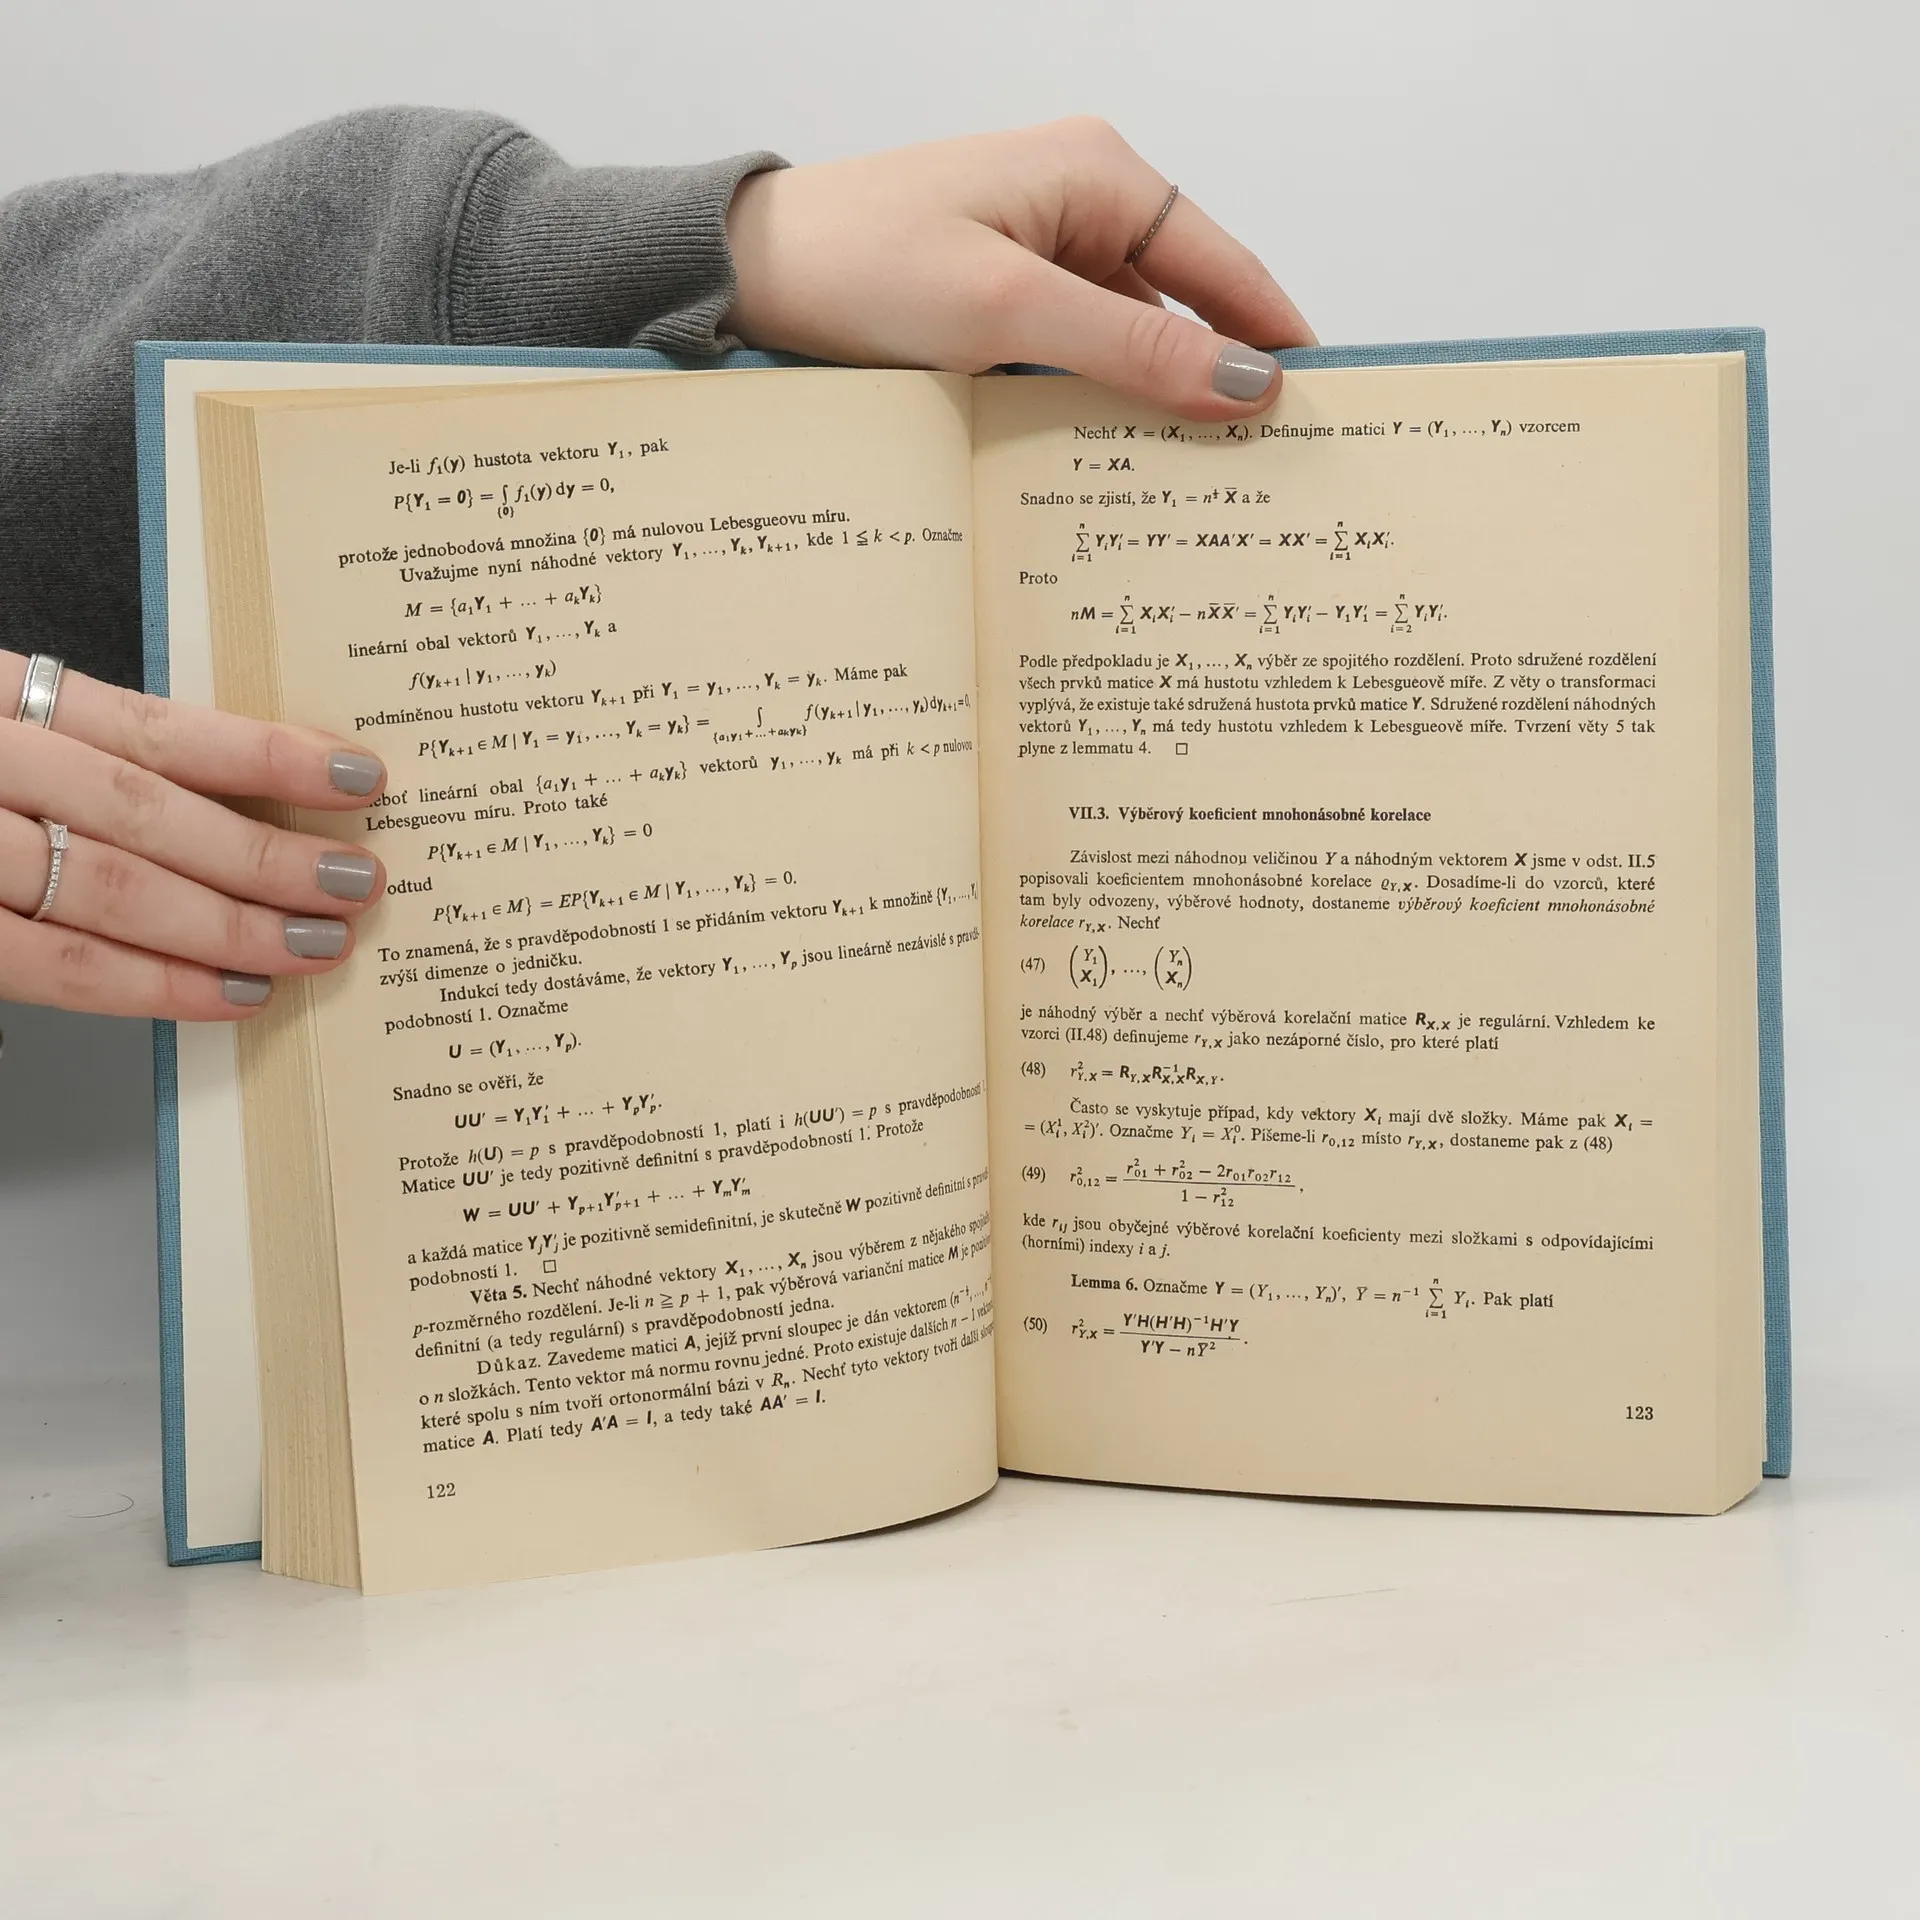 Je-li f₁(y) hustota vektoru Y₁, pak
P{Y₁ = 0} = ∫ f₁(y) dy = 0,
{0}
protože jednobodová množina {0} má nulovou Lebesgueovu míru.
Uvažujme nyní náhodné vektory Y₁, ..., Yₖ, Yₖ₊₁, kde 1 ≦ k < p. Označme
M = {a₁Y₁ + ... + aₖYₖ}
lineární obal vektorů Y₁, ..., Yₖ a
f(yₖ₊₁ | y₁, ..., yₖ)
podmíněnou hustotu vektoru Yₖ₊₁ při Y₁ = y₁, ..., Yₖ = yₖ. Máme pak
P{Yₖ₊₁ ∈ M | Y₁ = y₁, ..., Yₖ = yₖ} = ∫ f(yₖ₊₁ | y₁, ..., yₖ) dyₖ₊₁ = 0,
{a₁y₁ + ... + aₖyₖ}
lineární obal {a₁y₁ + ... + aₖyₖ} vektorů y₁, ..., yₖ má při k < p nulovou
Lebesgueovu míru. Proto také
P{Yₖ₊₁ ∈ M | Y₁, ..., Yₖ} = 0
odtud
P{Yₖ₊₁ ∈ M} = EP{Yₖ₊₁ ∈ M | Y₁, ..., Yₖ} = 0.
To znamená, že s pravděpodobností 1 se přidáním vektoru Yₖ₊₁ k množině {Y₁, ...,
zvýší dimenze o jedničku.
Indukcí tedy dostáváme, že vektory Y₁, ..., Yₚ jsou lineárně nezávislé s pravdě-
podobností 1. Označme
U = (Y₁, ..., Yₚ).
Snadno se ověří, že
UU′ = Y₁Y₁′ + ... + YₚYₚ′.
Protože h(U) = p s pravděpodobností 1, platí i h(UU′) = p s pravděpodobností 1.
Matice UU′ je tedy pozitivně definitní s pravděpodobností 1. Protože
W = UU′ + Yₚ₊₁Y′ₚ₊₁ + ... + YₘYₘ′
a každá matice YⱼYⱼ′ je pozitivně semidefinitní, je skutečně W pozitivně definitní s
podobností 1. □
Věta 5. Nechť náhodné vektory X₁, ..., Xₙ jsou výběrem z nějakého
p-rozměrného rozdělení. Je-li n ≧ p + 1, pak výběrová varianční matice M je
definitní (a tedy regulární) s pravděpodobností jedna.
Důkaz. Zavedeme matici A, jejíž první sloupec je dán vektorem (n^(-½), ...,
o n složkách. Tento vektor má normu rovnu jedné. Proto existuje dalších n − 1
které spolu s ním tvoří ortonormální bázi v Rₙ. Nechť tyto vektory tvoří další
matice A. Platí tedy A′A = I, a tedy také AA′ = I.
122
Nechť X = (X₁, ..., Xₙ). Definujme matici Y = (Y₁, ..., Yₙ) vzorcem
Y = XA.
Snadno se zjistí, že Y₁ = n^½ X̅ a že
∑ᵢ₌₁ⁿ YᵢYᵢ′ = YY′ = XAA′X′ = XX′ = ∑ᵢ₌₁ⁿ XᵢXᵢ′.
Proto
nM = ∑ᵢ₌₁ⁿ XᵢXᵢ′ − nX̅X̅′ = ∑ᵢ₌₁ⁿ YᵢYᵢ′ − Y₁Y₁′ = ∑ᵢ₌₂ⁿ YᵢYᵢ′.
Podle předpokladu je X₁, ..., Xₙ výběr ze spojitého rozdělení. Proto sdružené rozdělení
všech prvků matice X má hustotu vzhledem k Lebesgueově míře. Z věty o transformaci
vyplývá, že existuje také sdružená hustota prvků matice Y. Sdružené rozdělení náhodných
vektorů Y₁, ..., Yₙ má tedy hustotu vzhledem k Lebesgueově míře. Tvrzení věty 5 tak
plyne z lemmatu 4. □
VII.3. Výběrový koeficient mnohonásobné korelace
Závislost mezi náhodnou veličinou Y a náhodným vektorem X jsme v odst. II.5
popisovali koeficientem mnohonásobné korelace ϱ_Y,X. Dosadíme-li do vzorců, které
tam byly odvozeny, výběrové hodnoty, dostaneme výběrový koeficient mnohonásobné
korelace r_Y,X. Nechť
(47) (Y₁ X₁), ..., (Yₙ Xₙ)
je náhodný výběr a nechť výběrová korelační matice R_X,X je regulární. Vzhledem ke
vzorci (II.48) definujeme r_Y,X jako nezáporné číslo, pro které platí
(48) r²_Y,X = R_Y,X R⁻¹_X,X R_X,Y.
Často se vyskytuje případ, kdy vektory Xᵢ mají dvě složky. Máme pak Xᵢ =
= (Xᵢ¹, Xᵢ²)′. Označme Yᵢ = Xᵢ⁰. Píšeme-li r₀,₁₂ místo r_Y,X, dostaneme pak z (48)
(49) r²₀,₁₂ = (r²₀₁ + r²₀₂ − 2r₀₁r₀₂r₁₂) / (1 − r²₁₂),
kde rᵢⱼ jsou obyčejné výběrové korelační koeficienty mezi složkami s odpovídajícími
(horními) indexy i a j.
Lemma 6. Označme Y = (Y₁, ..., Yₙ)′, Y̅ = n⁻¹ ∑ᵢ₌₁ⁿ Yᵢ. Pak platí
(50) r²_Y,X = Y′H(H′H)⁻¹H′Y / (Y′Y − nY̅²).
123